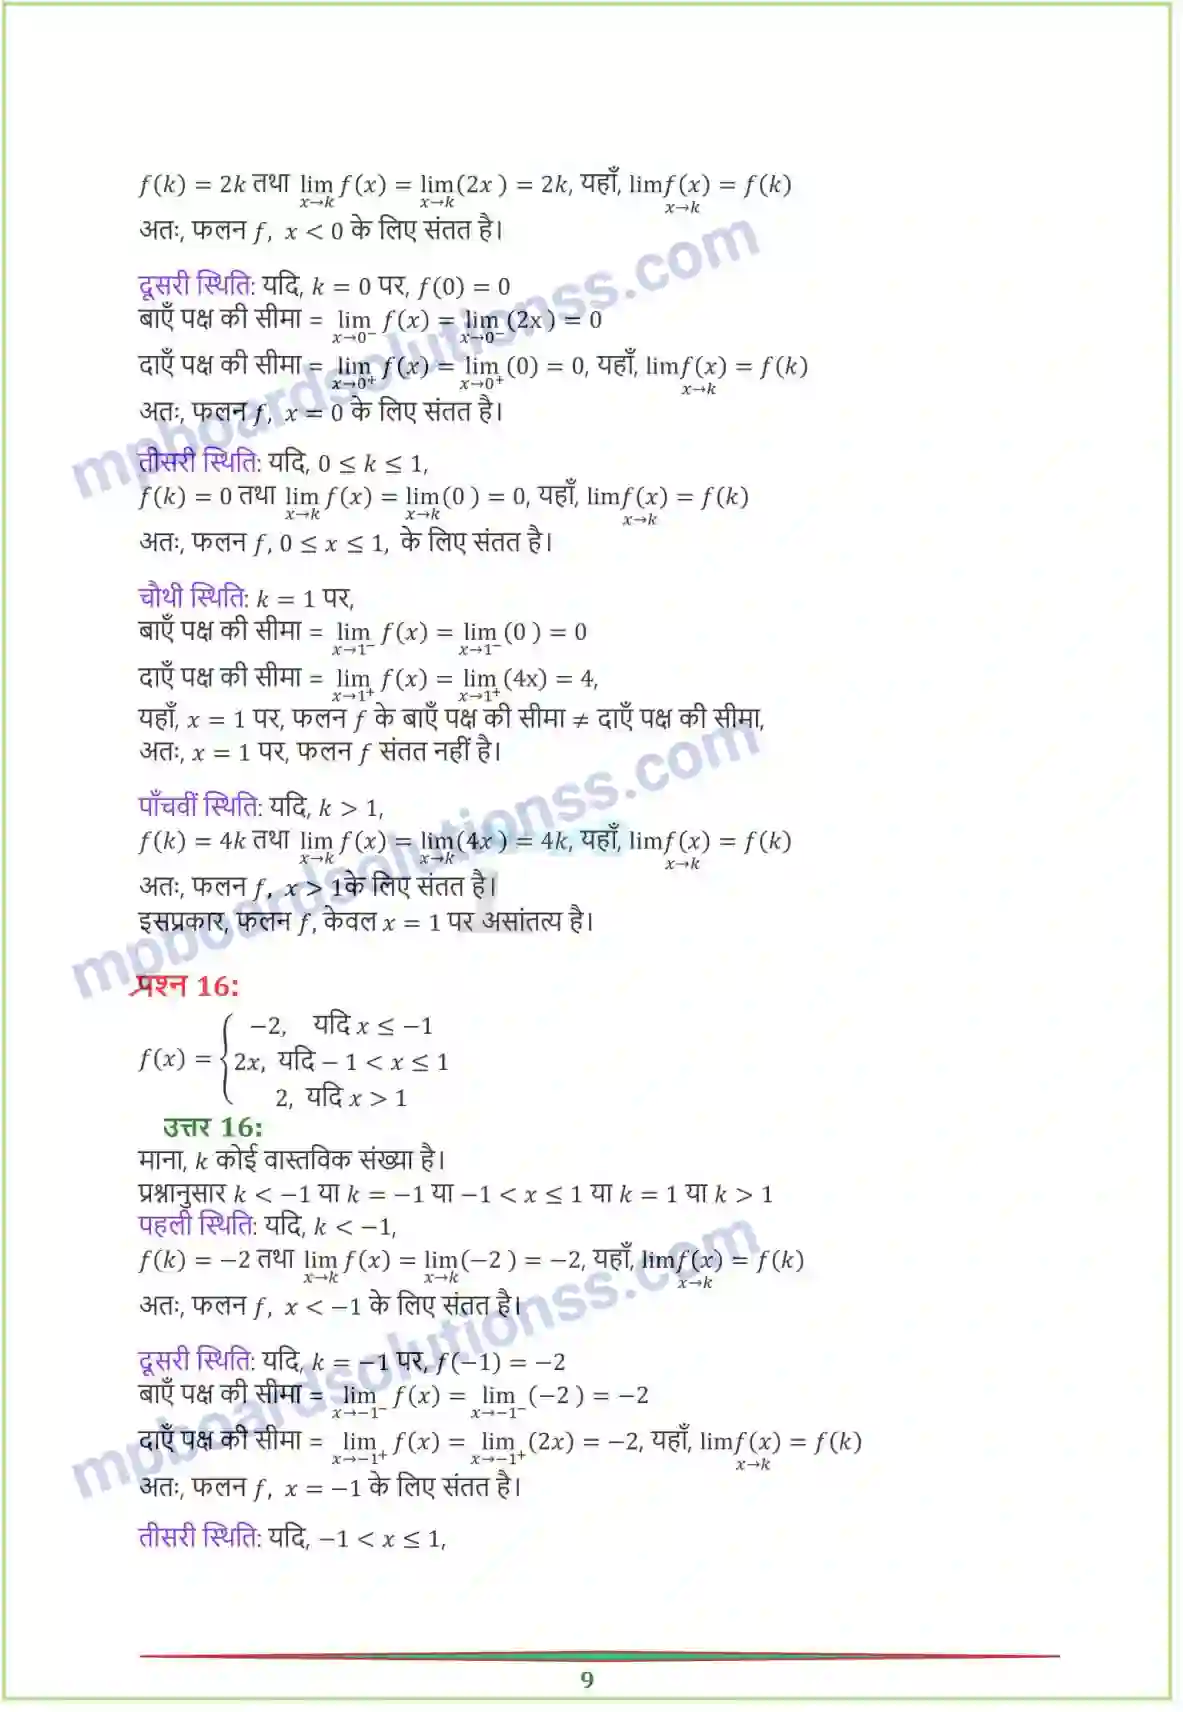 f(k) = 2k तथा lim x→k f(x) = lim x→k (2x) = 2k, यहाँ, lim x→k f(x) = f(k)
अतः, फलन f, x < 0 के लिए संतत है।
दूसरी स्थिति: यदि, k = 0 पर, f(0) = 0
बाएँ पक्ष की सीमा = lim x→0⁻ f(x) = lim x→0⁻ (2x) = 0
दाएँ पक्ष की सीमा = lim x→0⁺ f(x) = lim x→0⁺ (0) = 0, यहाँ, lim x→k f(x) = f(k)
अतः, फलन f, x = 0 के लिए संतत है।
तीसरी स्थिति: यदि, 0 ≤ k ≤ 1,
f(k) = 0 तथा lim x→k f(x) = lim x→k (0) = 0, यहाँ, lim x→k f(x) = f(k)
अतः, फलन f, 0 ≤ x ≤ 1, के लिए संतत है।
चौथी स्थिति: k = 1 पर,
बाएँ पक्ष की सीमा = lim x→1⁻ f(x) = lim x→1⁻ (0) = 0
दाएँ पक्ष की सीमा = lim x→1⁺ f(x) = lim x→1⁺ (4x) = 4,
यहाँ, x = 1 पर, फलन f के बाएँ पक्ष की सीमा ≠ दाएँ पक्ष की सीमा,
अतः, x = 1 पर, फलन f संतत नहीं है।
पाँचवीं स्थिति: यदि, k > 1,
f(k) = 4k तथा lim x→k f(x) = lim x→k (4x) = 4k, यहाँ, lim x→k f(x) = f(k)
अतः, फलन f, x > 1के लिए संतत है।
इसप्रकार, फलन f, केवल x = 1 पर असांतत्य है।
प्रश्न 16:
f(x) = { −2, यदि x ≤ −1
2x, यदि − 1 < x ≤ 1
2, यदि x > 1
उत्तर 16:
माना, k कोई वास्तविक संख्या है।
प्रश्नानुसार k < −1 या k = −1 या −1 < x ≤ 1 या k = 1 या k > 1
पहली स्थिति: यदि, k < −1,
f(k) = −2 तथा lim x→k f(x) = lim x→k (−2) = −2, यहाँ, lim x→k f(x) = f(k)
अतः, फलन f, x < −1 के लिए संतत है।
दूसरी स्थिति: यदि, k = −1 पर, f(−1) = −2
बाएँ पक्ष की सीमा = lim x→−1⁻ f(x) = lim x→−1⁻ (−2) = −2
दाएँ पक्ष की सीमा = lim x→−1⁺ f(x) = lim x→−1⁺ (2x) = −2, यहाँ, lim x→k f(x) = f(k)
अतः, फलन f, x = −1 के लिए संतत है।
तीसरी स्थिति: यदि, −1 < x ≤ 1,
9
mpboardsolutionss.com
mpboardsolutionss.com
mpboardsolutionss.com